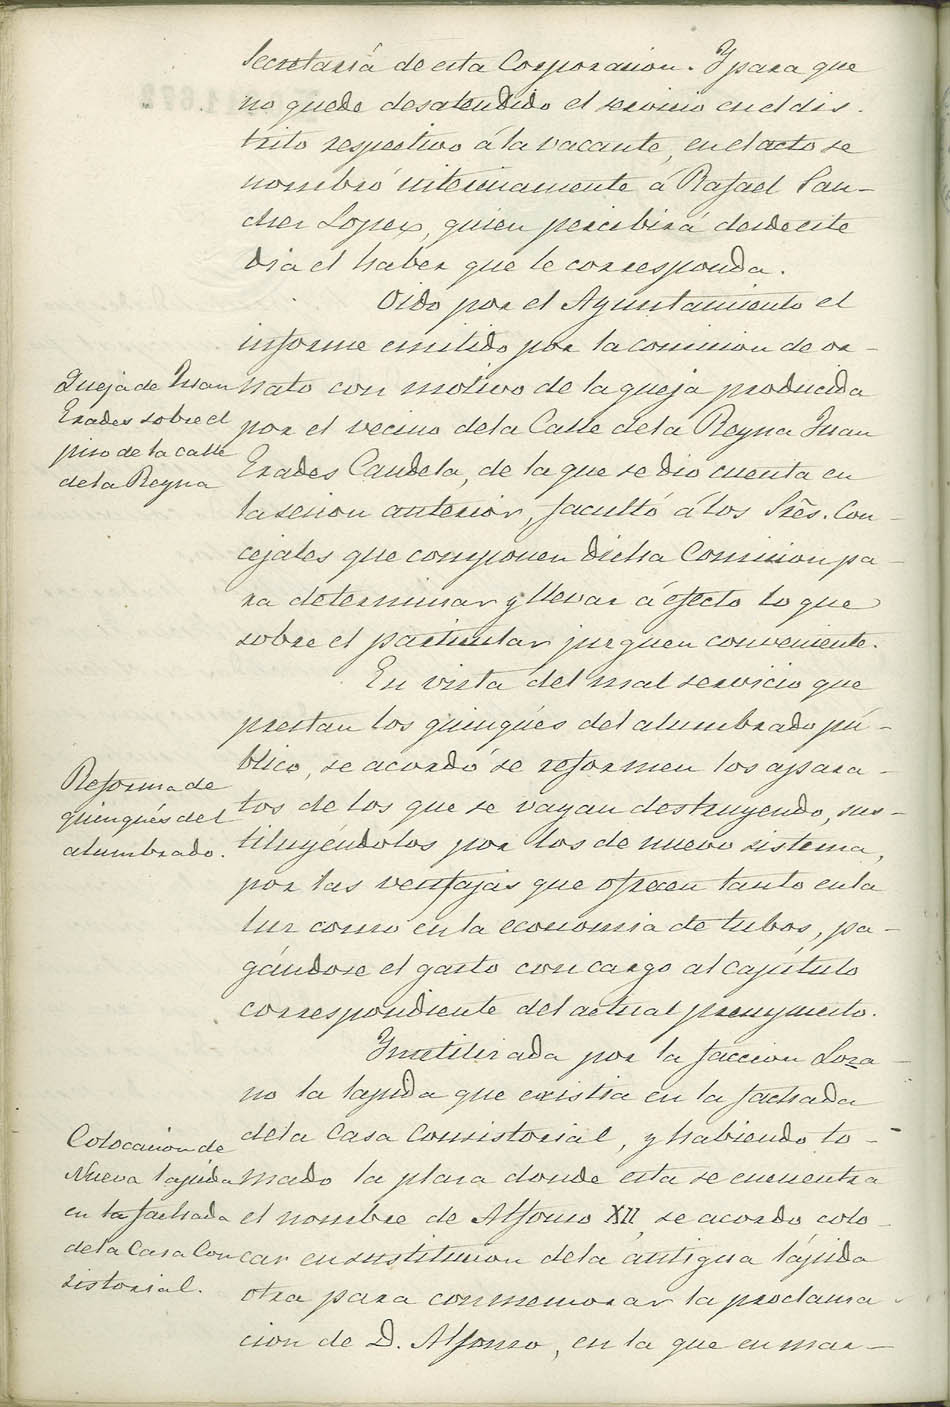 Secretaría de esta Corporacion. Y para que
no quede desatendido el servicio en el dis-
trito respectivo á la vacante, en el acto se
nombró interinamente á Rafael San-
chez Lopez, quien percibirá desde este
dia el haber que le corresponda.
Oido por el Ayuntamiento el
informe emitido por la comision de or-
Queja de Juan
Erades sobre el
piso de la calle
de la Reyna
nato con motivo de la queja producida
por el vecino de la Calle de la Reyna Juan
Erades Candela, de la que se dio cuenta en
la sesion anterior, facultó á los Srẽs. Con-
cejales que componen dicha Comision pa-
ra determinar y llevar á efecto lo que
sobre el particular juzguen conveniente.
En vista del mal servicio que
prestan los quinqués del alumbrado pú-
blico, se acordó se reformen los apara-
Reforma de
quinqués del
alumbrado.
tos de los que se vayan destruyendo, sus-
tituyéndolos por los de nuevo sistema,
por las ventajas que ofrecen tanto en la
luz como en la economia de tubos, pa-
gándose el gasto con cargo al capítulo
correspondiente del actual presupuesto.
Inutilizada por la faccion Loza-
no la lapida que existia en la fachada
de la Casa Consistorial, y habiendo to-
Colocacion de
Nueva lapida
en la fachada
de la Casa Con
sistorial.
mado la plaza donde esta se encuentra
el nombre de Alfonso XII, se acordó colo-
car en sustitucion de la antigua lápida
otra para conmemorar la proclama-
cion de D. Alfonso, en la que en mar-